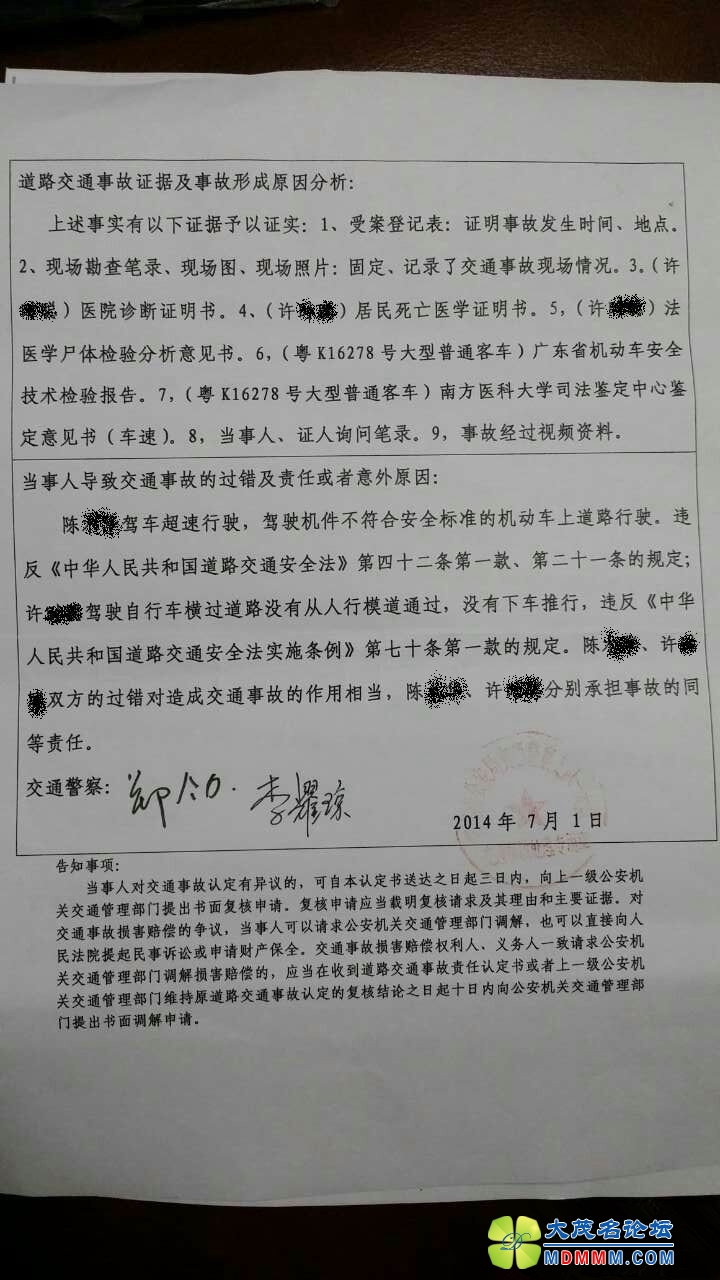 道路交通事故证据及事故形成原因分析：
上述事实有以下证据予以证实：1、受案登记表：证明事故发生时间、地点。
2、现场勘查笔录、现场图、现场照片：固定、记录了交通事故现场情况。3。（许
）医院诊断证明书。4、（许）居民死亡医学证明书。5，（许）法
医学尸体检验分析意见书。6，（粤K16278号大型普通客车）广东省机动车安全
技术检验报告。7，（粤K16278号大型普通客车）南方医科大学司法鉴定中心鉴
定意见书（车速）。8，当事人、证人询问笔录。9，事故经过视频资料。
当事人导致交通事故的过错及责任或者意外原因：
陈驾车超速行驶，驾驶机件不符合安全标准的机动车上道路行驶。违
反《中华人民共和国道路交通安全法》第四十二条第一款、第二十一条的规定；
许驾驶自行车横过道路没有从人行模道通过，没有下车推行，违反《中华
人民共和国道路交通安全法实施条例》第七十条第一款的规定。陈、许
双方的过错对造成交通事故的作用相当，陈、许分别承担事故的同
等责任。
交通警察： 李耀琼
2014年7月1日
告知事项：
当事人对交通事故认定有异议的，可自本认定书送达之日起三日内，向上一级公安机
关交通管理部门提出书面复核申请。复核申请应当载明复核请求及其理由和主要证据。对
交通事故损害赔偿的争议，当事人可以请求公安机关交通管理部门调解，也可以直接向人
民法院提起民事诉讼或申请财产保全。交通事故损害赔偿权利人、义务人一致请求公安机
关交通管理部门调解损害赔偿的，应当在收到道路交通事故责任认定书或者上一级公安机
关交通管理部门维持原道路交通事故认定的复核结论之日起十日内向公安机关交通管理部
门提出书面调解申请。
大茂名论坛
MDMMM.COM